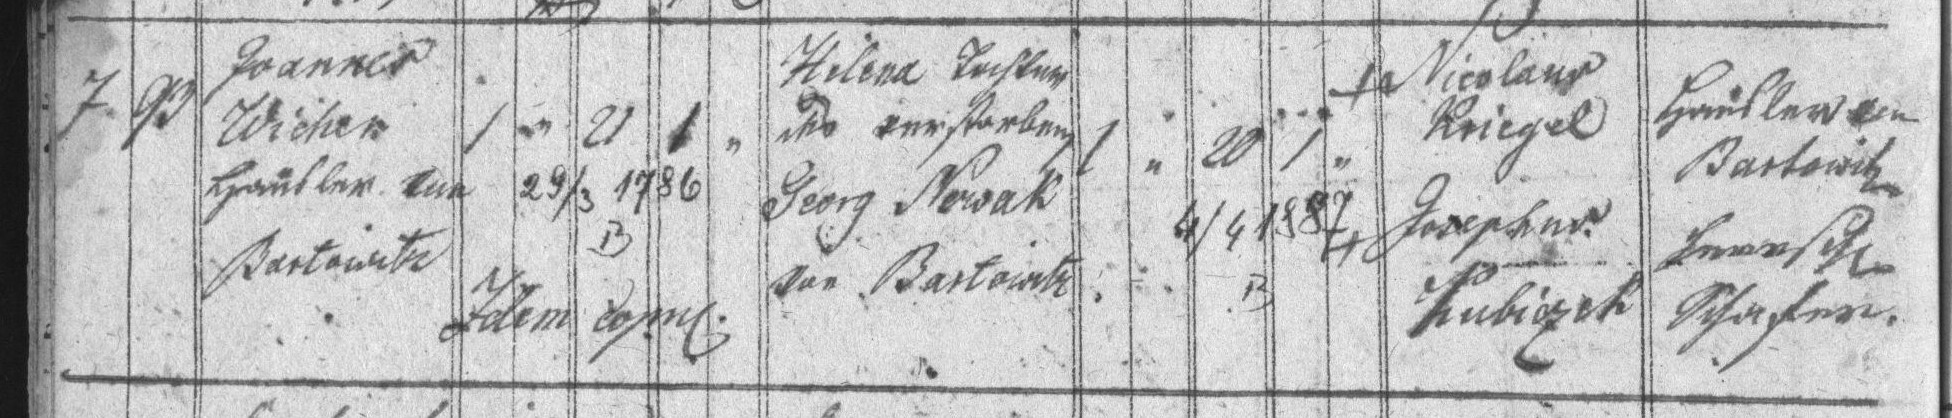 7. 93
Joannes
Wicher
Häusler aus
Bartowitz
1 " 21 1 "
29/3 1786
B
Idem copul.
Helena Tochter
des verstorben
Georg Nowak
von Bartowitz
1 " 20 1 "
4/4 1787
B
+ Nicolaus
Kriegel
+ Josephus
Kubiczek
Häusler aus
Bartowitz